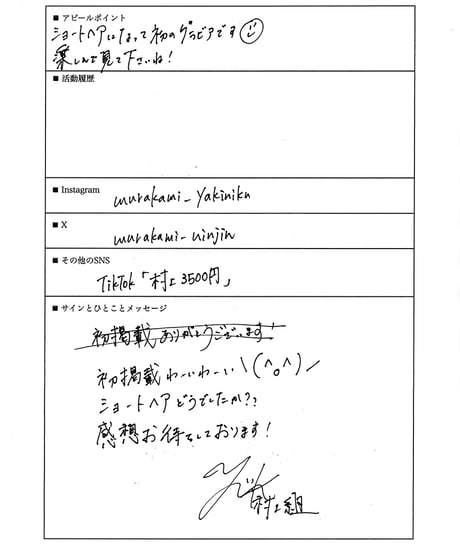 ■ アピールポイント
ショートヘアになって初のグラビアです
楽しんで見て下さいね!
■ 活動履歴
■ Instagram
murakami_yakiniku
■ X
murakami_ninjin
■ その他のSNS
TikTok「村上3500円」
■ サインとひとことメッセージ
初掲載ありがとうございます!
初掲載わーいわーい\(^o^)/
ショートヘアどうでしたか??
感想お待ちしております!
村上組